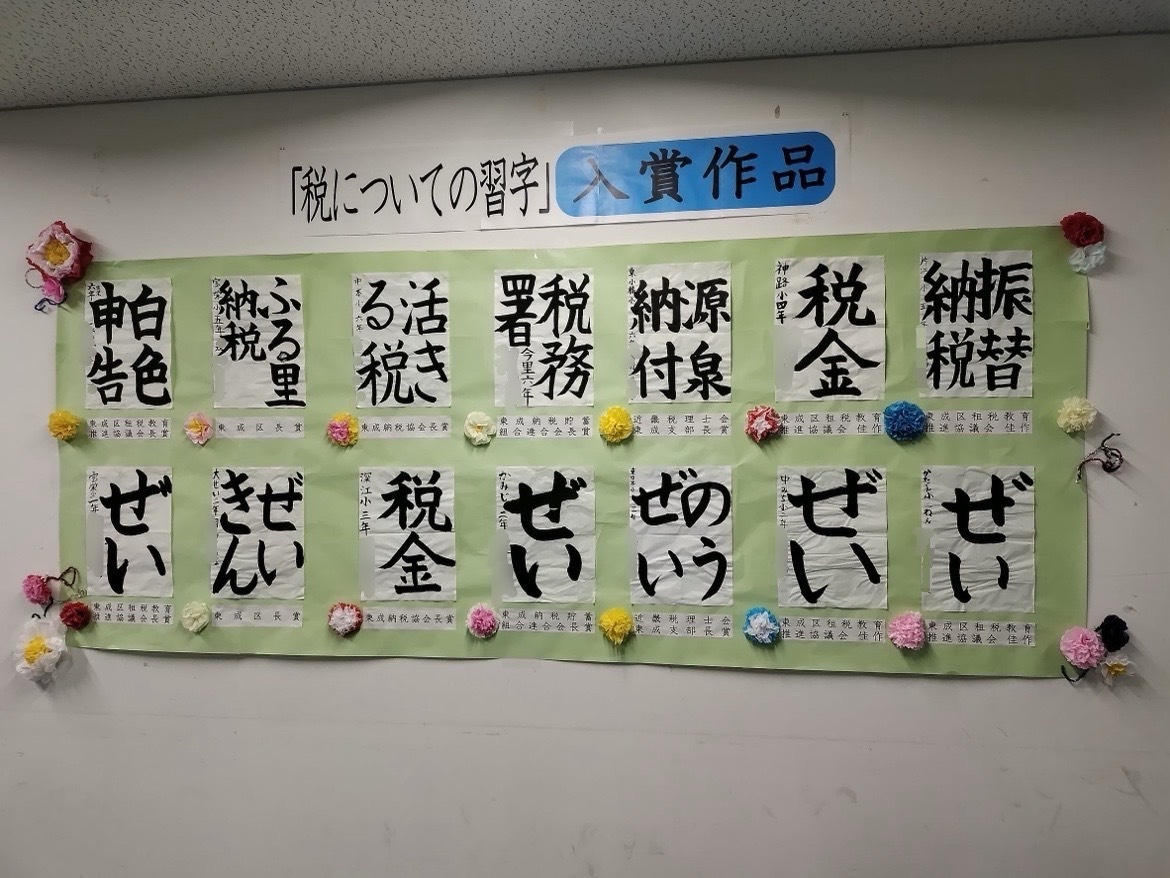 「税についての習字」入賞作品
白色
申告
東成区租税教育
推進協議会長賞
ふる里
納税
東成区長賞
活き
る税
中本小六年
東成納税協会長賞
税務
署
今里六年
東成納税貯蓄
組合連合会長賞
源泉
納付
近畿税理士会
東成支部長賞
税金
神路小四年
東成区租税教育
推進協議会佳作
振替
納税
東成区租税教育
推進協議会佳作
ぜい
東成区租税教育
推進協議会長賞
ぜい
きん
東成区長賞
税金
深江小三年
東成納税協会長賞
ぜい
かみじ二年
東成納税貯蓄
組合連合会長賞
のう
ぜい
近畿税理士会
東成支部長賞
ぜい
東成区租税教育
推進協議会佳作
ぜい
東成区租税教育
推進協議会佳作